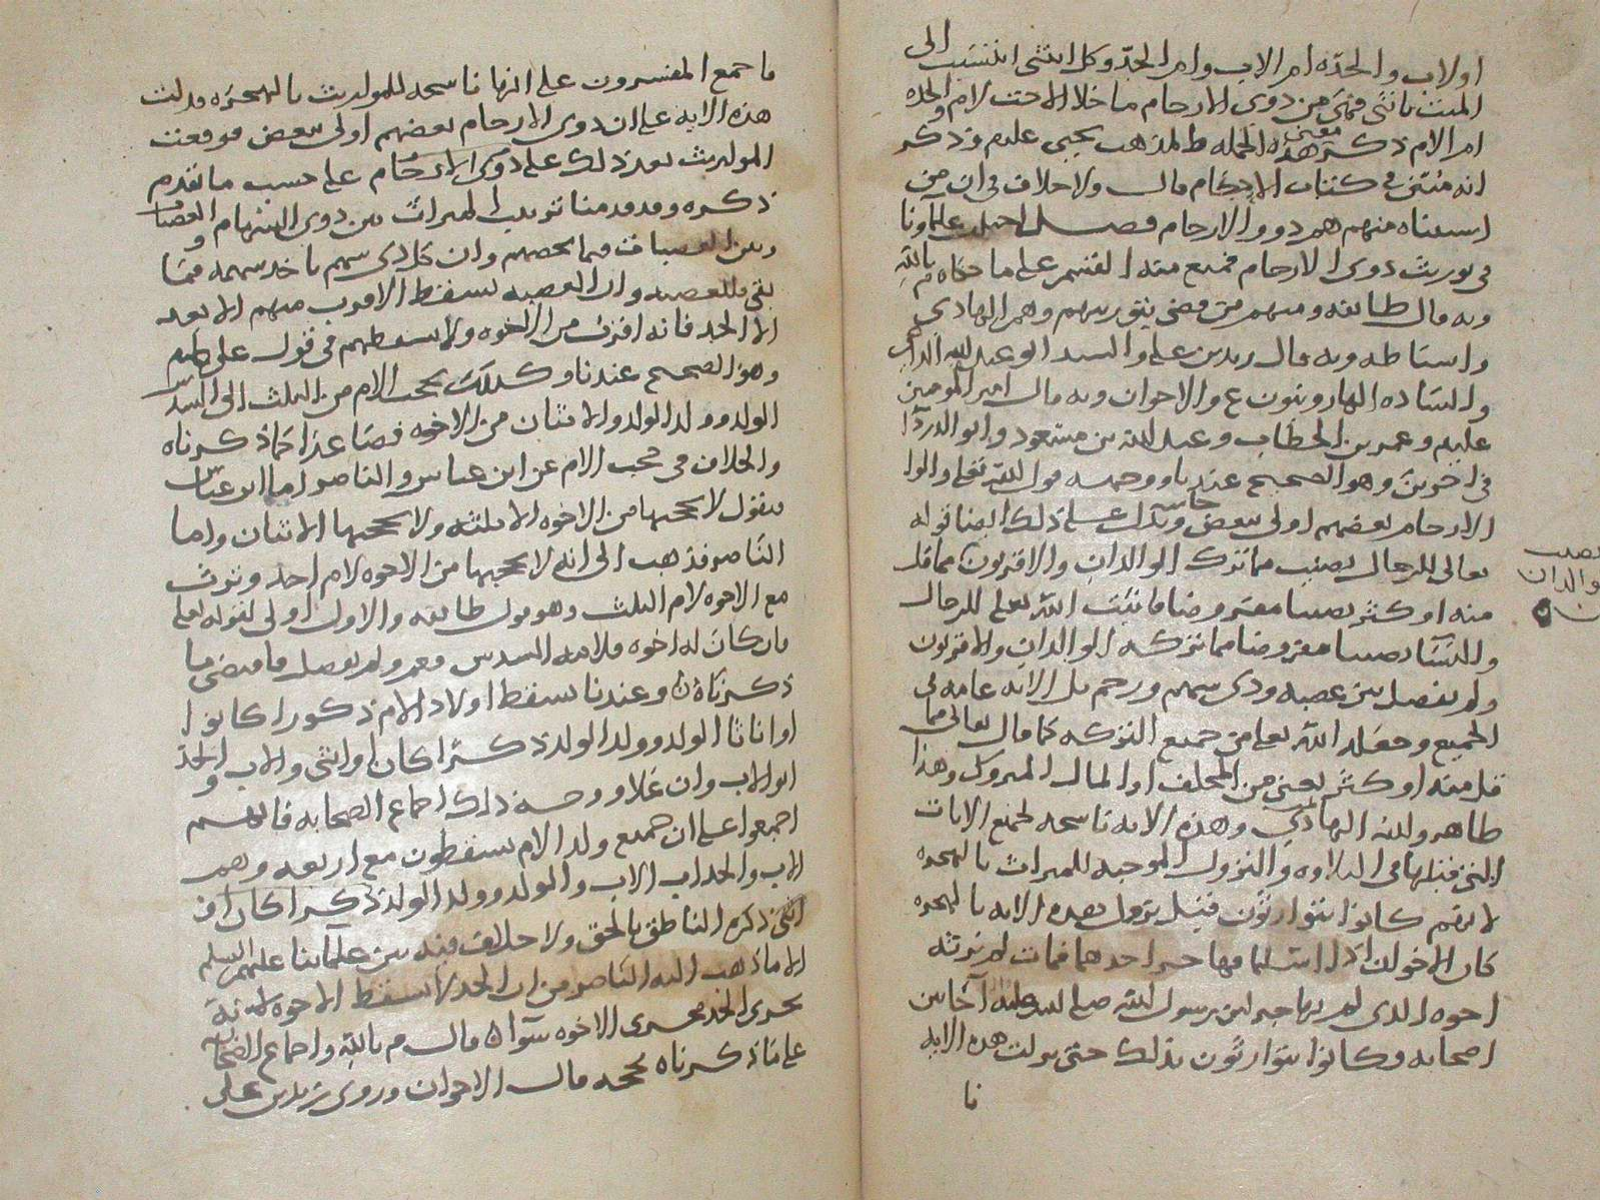 او لاب والجده ام الاب وام الجد وكل انثى انتسبت الى
الميت بانثى فهي من ذوي الارحام ما خلا الاخت لام والجده
ام الام ذكر معنى هذه الجمله ط المذهب يحيى عليلم وذكر
انه منتزع في كتاب الاحكام قال ولا خلاف في ان من
اسقطناه منهم هم ذووا الارحام فصل اختلف علماؤنا
في توريث ذوي الارحام فمنع منه القسم على ما حكاه م بالله
وبه قال طائفه ومنهم من قضى بتوريثهم وهم الهادي
واسباطه وبه قال زيد بن علي والسيد ابو عبدالله الداعي
والساده الهارونيون ع والاخوان وبه قال امير المومنين
عليلم وعمر بن الخطاب وعبدالله بن مسعود وابو الدردآ
في اخرين وهو الصحيح عندنا ووجهه قول الله تعالى واولوا
الارحام بعضهم اولى ببعض ويدل على ذلك ايضا قوله
تعالى للرجال نصيب مما ترك الوالدان والاقربون مما قل
منه او كثر نصيبا مفروضا فاثبت الله تعالى للرجال
والنسآ نصيبا مفروضا مما تركه الوالدان والاقربون
ولم يفصل بين عصبه وذي سهم ورحم بل الايه عامه في
الجميع وجعله الله تعالى من جميع التركه كما قال تعالى مما
قل منه او كثر يعني من المخلف او المال المتروك وهذا
ظاهر ولله الهادي وهذه الايه ناسخه لجميع الايات
التي قبلها في التلاوه والنزول الموجبه للميراث بالهجره
لانهم كانوا يتوارثون قبل نزول هذه الايه بالهجره
كان الاخوان اذا اسلما فهاجر احدهما فمات لم يرثه
اخوه الذي لم يهاجر لان رسول الله صلى الله عليه آخا بين
اصحابه وكانوا يتوارثون بذلك حتى نزلت هذه الايه
نا
نصيب
والدان
ما جمع المفسرون على انها ناسخه للموارث بالهجره ودلت
هذه الايه على ان ذوي الارحام بعضهم اولى ببعض فوقعت
المواريث بعد ذلك على ذوي الارحام على حسب ما تقدم
ذكره وقد قدمنا ترتيب الميراث بين ذوي السهام والعصبات
وبين العصبات فيما يخصهم وان كل ذي سهم ياخذ سهمه فما
بقي فللعصبه وان العصبه يسقط الاقرب منهم الابعد
الا الجد فانه اقرب من الاخوه ولا يسقطهم في قول علي عليلم
وهو الصحيح عندنا وكذلك يحجب الام من الثلث الى السدس
الولد وولد الولد والاثنان من الاخوه فصاعدا كما ذكرناه
والخلاف في حجب الام عن ابن عباس والناصر اما ابن عباس
فيقول لا يحجبها من الاخوه الا ثلثه ولا يحجبها الاثنان واما
الناصر فذهب الى انه لا يحجبها من الاخوه لام احد وترث
مع الاخوه لام الثلث وهو قول طائفه والاول اولى لقوله تعلى
فان كان له اخوه فلامه السدس فعم ولم يفصل فاقتضى ما
ذكرناه وعندنا يسقط اولاد الام ذكورا كانوا
او اناثا الولد وولد الولد ذكرا كان او انثى والاب والجد
ابو الاب وان علا ووجه ذلك اجماع الصحابه فانهم
اجمعوا على ان جميع ولد الام يسقطون مع اربعه وهم
الاب والجد اب الاب والولد وولد الولد ذكرا كان او
انثى ذكره الناطق بالحق ولا خلاف فيه بين علمائنا عليهم السلم
الا ما ذهب اليه الناصر من ان الجد لا يسقط الاخوه لانه
يجري الجد مجرى الاخوه سوآ قال م بالله واجماع الصحابه
على ما ذكرناه يحجه قال الاخوان وروى زيد بن علي